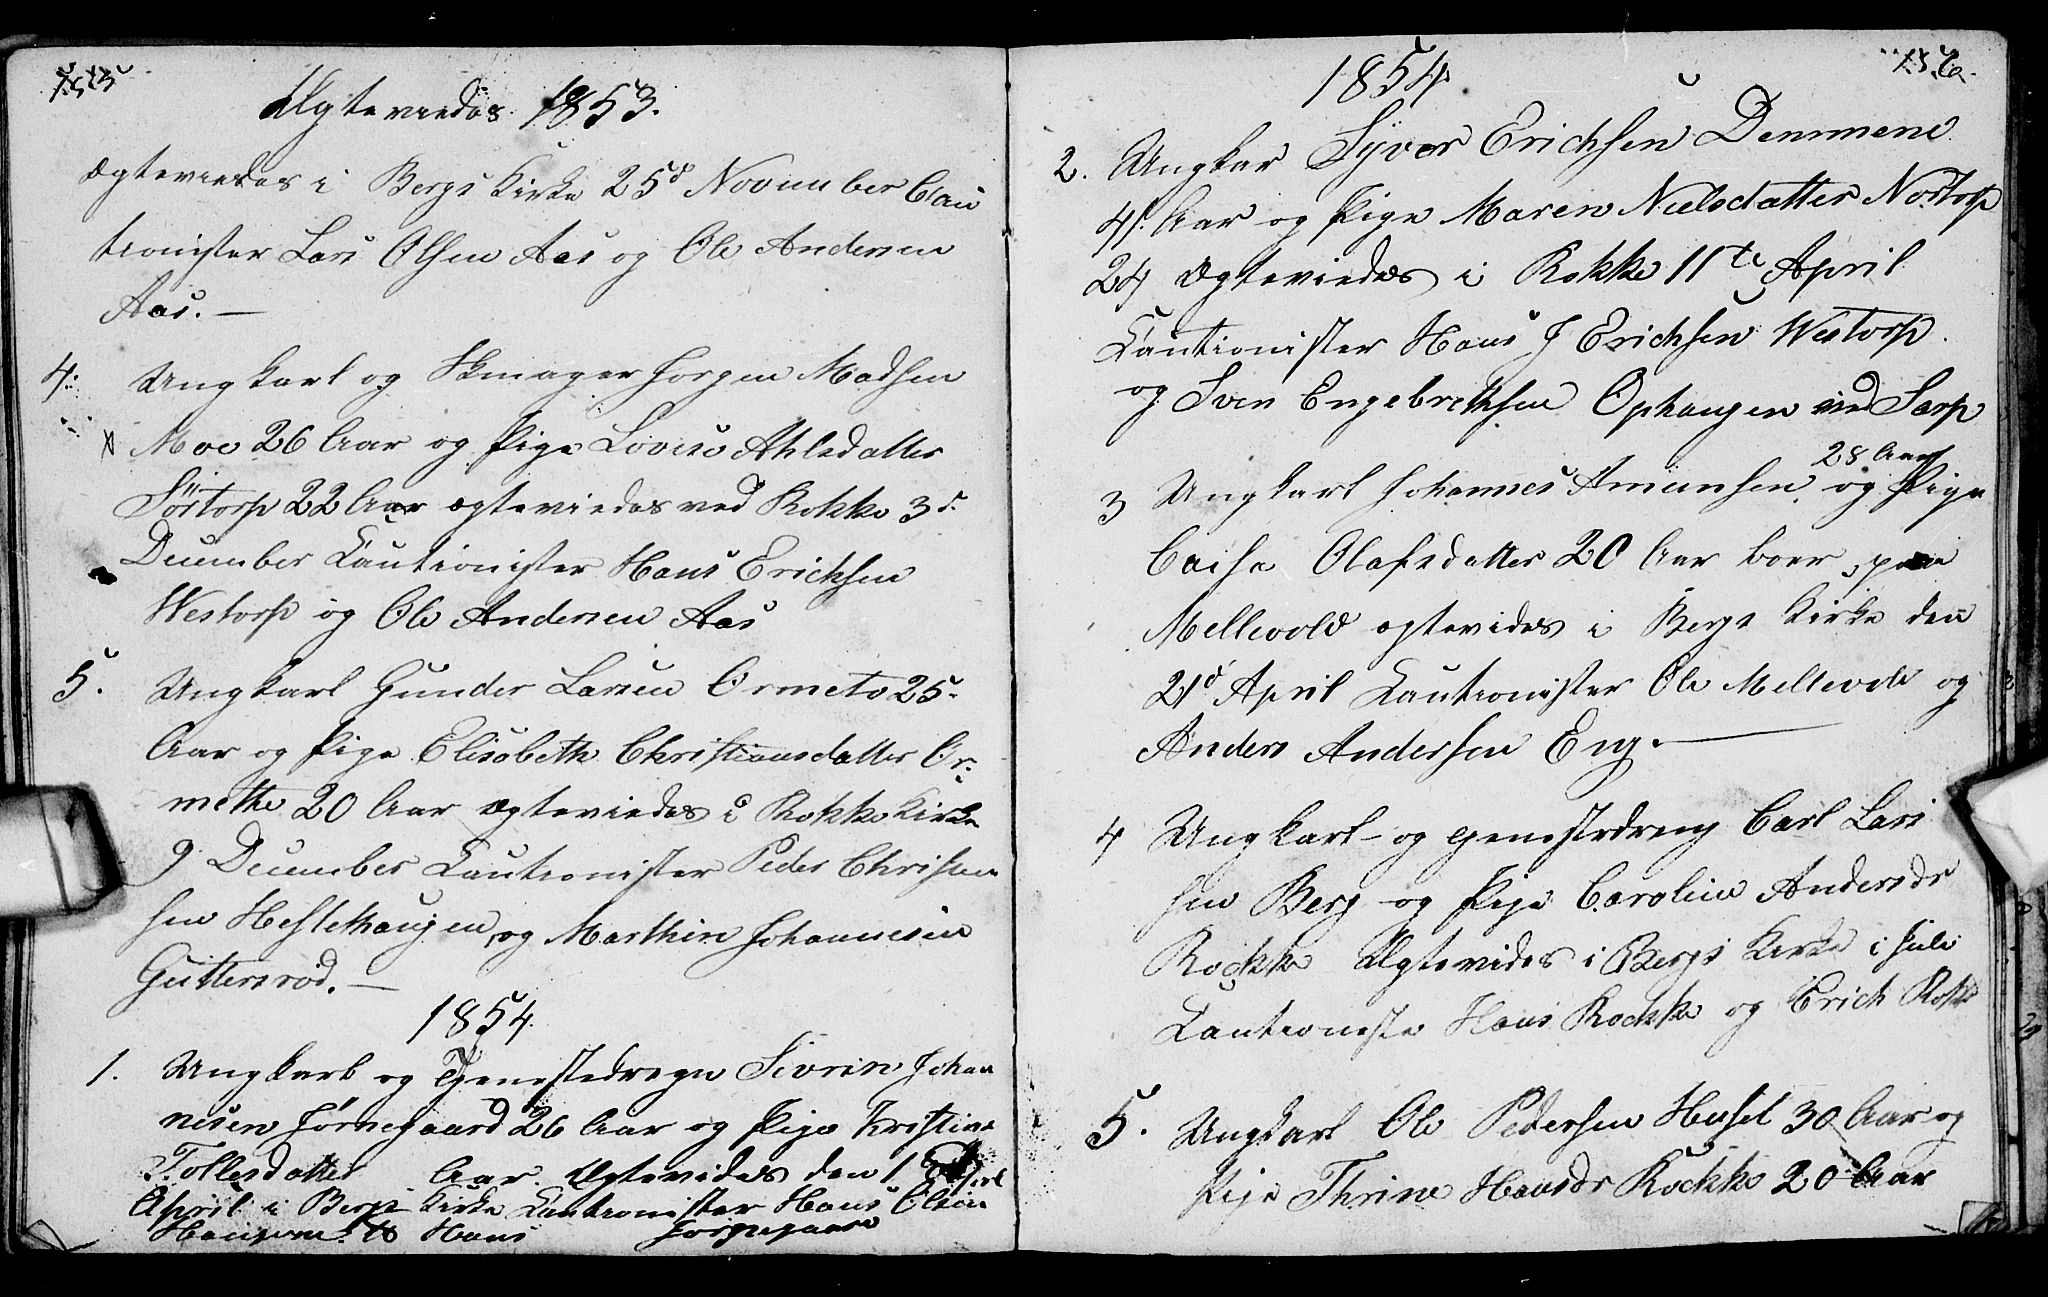 155
Ægteviedes 1853.
ægteviedes i Bergs Kirke 25d November Cau
tionister Lars Olsen Aas og Ole Andersen
Aas. —
4. Ungkarl og Skmager Jørgen Madsen
Moe 26 Aar og Pige Lovise Ahlsdatter
Törtorp 22 Aar ægteviedes ved Rokke 3d.
December Cautionister Hans Erichsen
Westorp og Ole Andersen Aas
5. Ungkarl Gunder Larsen Ormeto 25
Aar og Pige Elisabeth Christiansdatter Or-
methe 20 Aar ægteviedes i Rokke Kirke
9 December Cautionister Peder Christen
sen Hestehaugen og Marthin Johannesen
Guttersrød. —
1854
1. Ungkarl og Tjenestedregn Sivrin Johan
nesen Jørnegaard 26 Aar og Pige Kristine
Tollesdatter Aar. Ægtevides den 1
April i Bergs Kirke Cautionister Hans Olsen
Hans Jørnegaard
156
1854
2. Ungkar Syver Erichsen Demmene
41. Aar og Pige Maren Nielsdatter Nostorp
24 Ægteviedes i Rokke 11te April
Cautionister Hans J Erichsen Westorp.
og Sven Engebrethsen Ophaugen ved Sarp
28 Aar
3 Ungkarl Johannes Amunsen og Pige
Caisa Olafsdatter 20 Aar boer paa
Mellevold ægtevides i Bergs Kirke den
21d April Cautionister Ole Mellevold og
Anders Andersen Eng. —
4 Ungkarl og tjenestedreng Carl Lars
sen Berg og Pige Caroline Andersdr
Rockke Ægtevides i Bergs Kirke i Juli
Cautioniste Hans Rockke og Erich Rokke
5. Ungkarl Ole Pedersen Husel 30 Aar og
Pige Thrine Hansdr Rockke 20 Aar